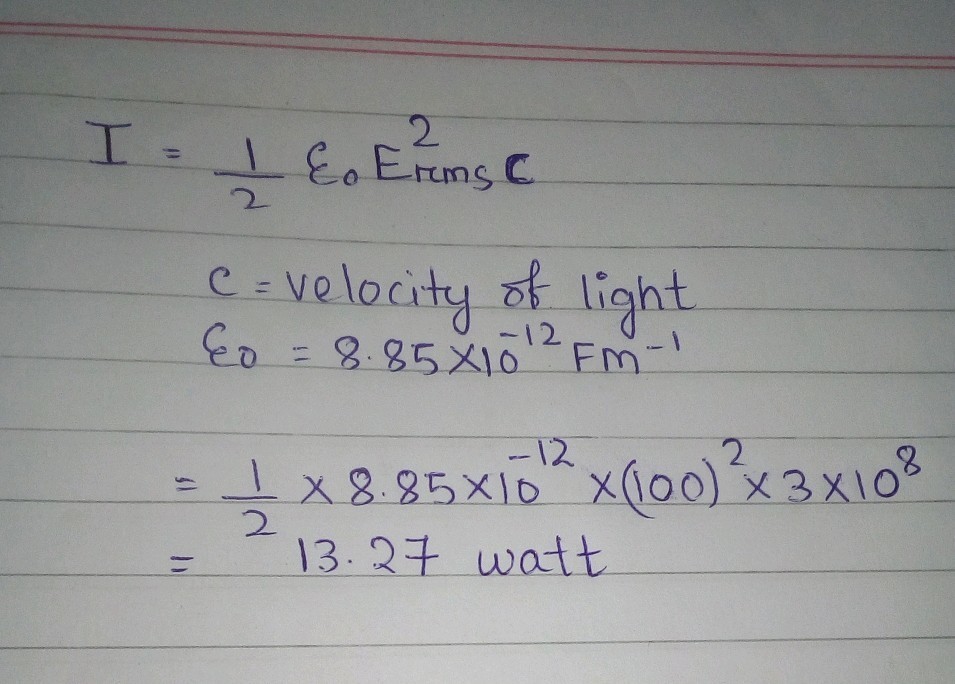 I = 1/2 ε₀ E²rms C
C = velocity of light
ε₀ = 8.85 × 10⁻¹² Fm⁻¹
= 1/2 × 8.85 × 10⁻¹² × (100)² × 3 × 10⁸
= 13.27 watt